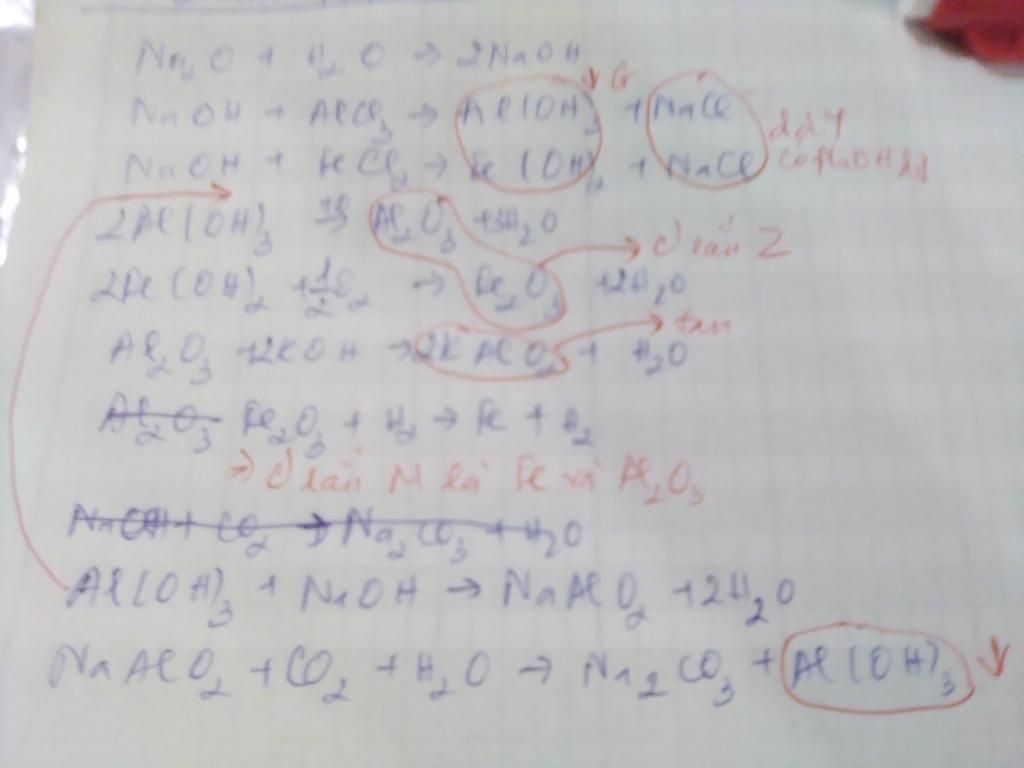 Na₂O + H₂O → 2NaOH
NaOH + AlCl₃ → Al(OH)₃ ↓ G + NaCl
NaOH + FeCl₂ → Fe(OH)₂ + NaCl
dd Y
có NaOH dư
2Al(OH)₃ → Al₂O₃ + 3H₂O
c/rắn Z
2Fe(OH)₂ + 1/2O₂ → Fe₂O₃ + 2H₂O
tan
Al₂O₃ + 2KOH → 2KAlO₂ + H₂O
Al₂O₃ Fe₂O₃ + H₂ → Fe + H₂
→ c/rắn M là Fe và Al₂O₃
NaOH + CO₂ → Na₂CO₃ + H₂O
Al(OH)₃ + NaOH → NaAlO₂ + 2H₂O
NaAlO₂ + CO₂ + H₂O → Na₂CO₃ + Al(OH)₃ ↓